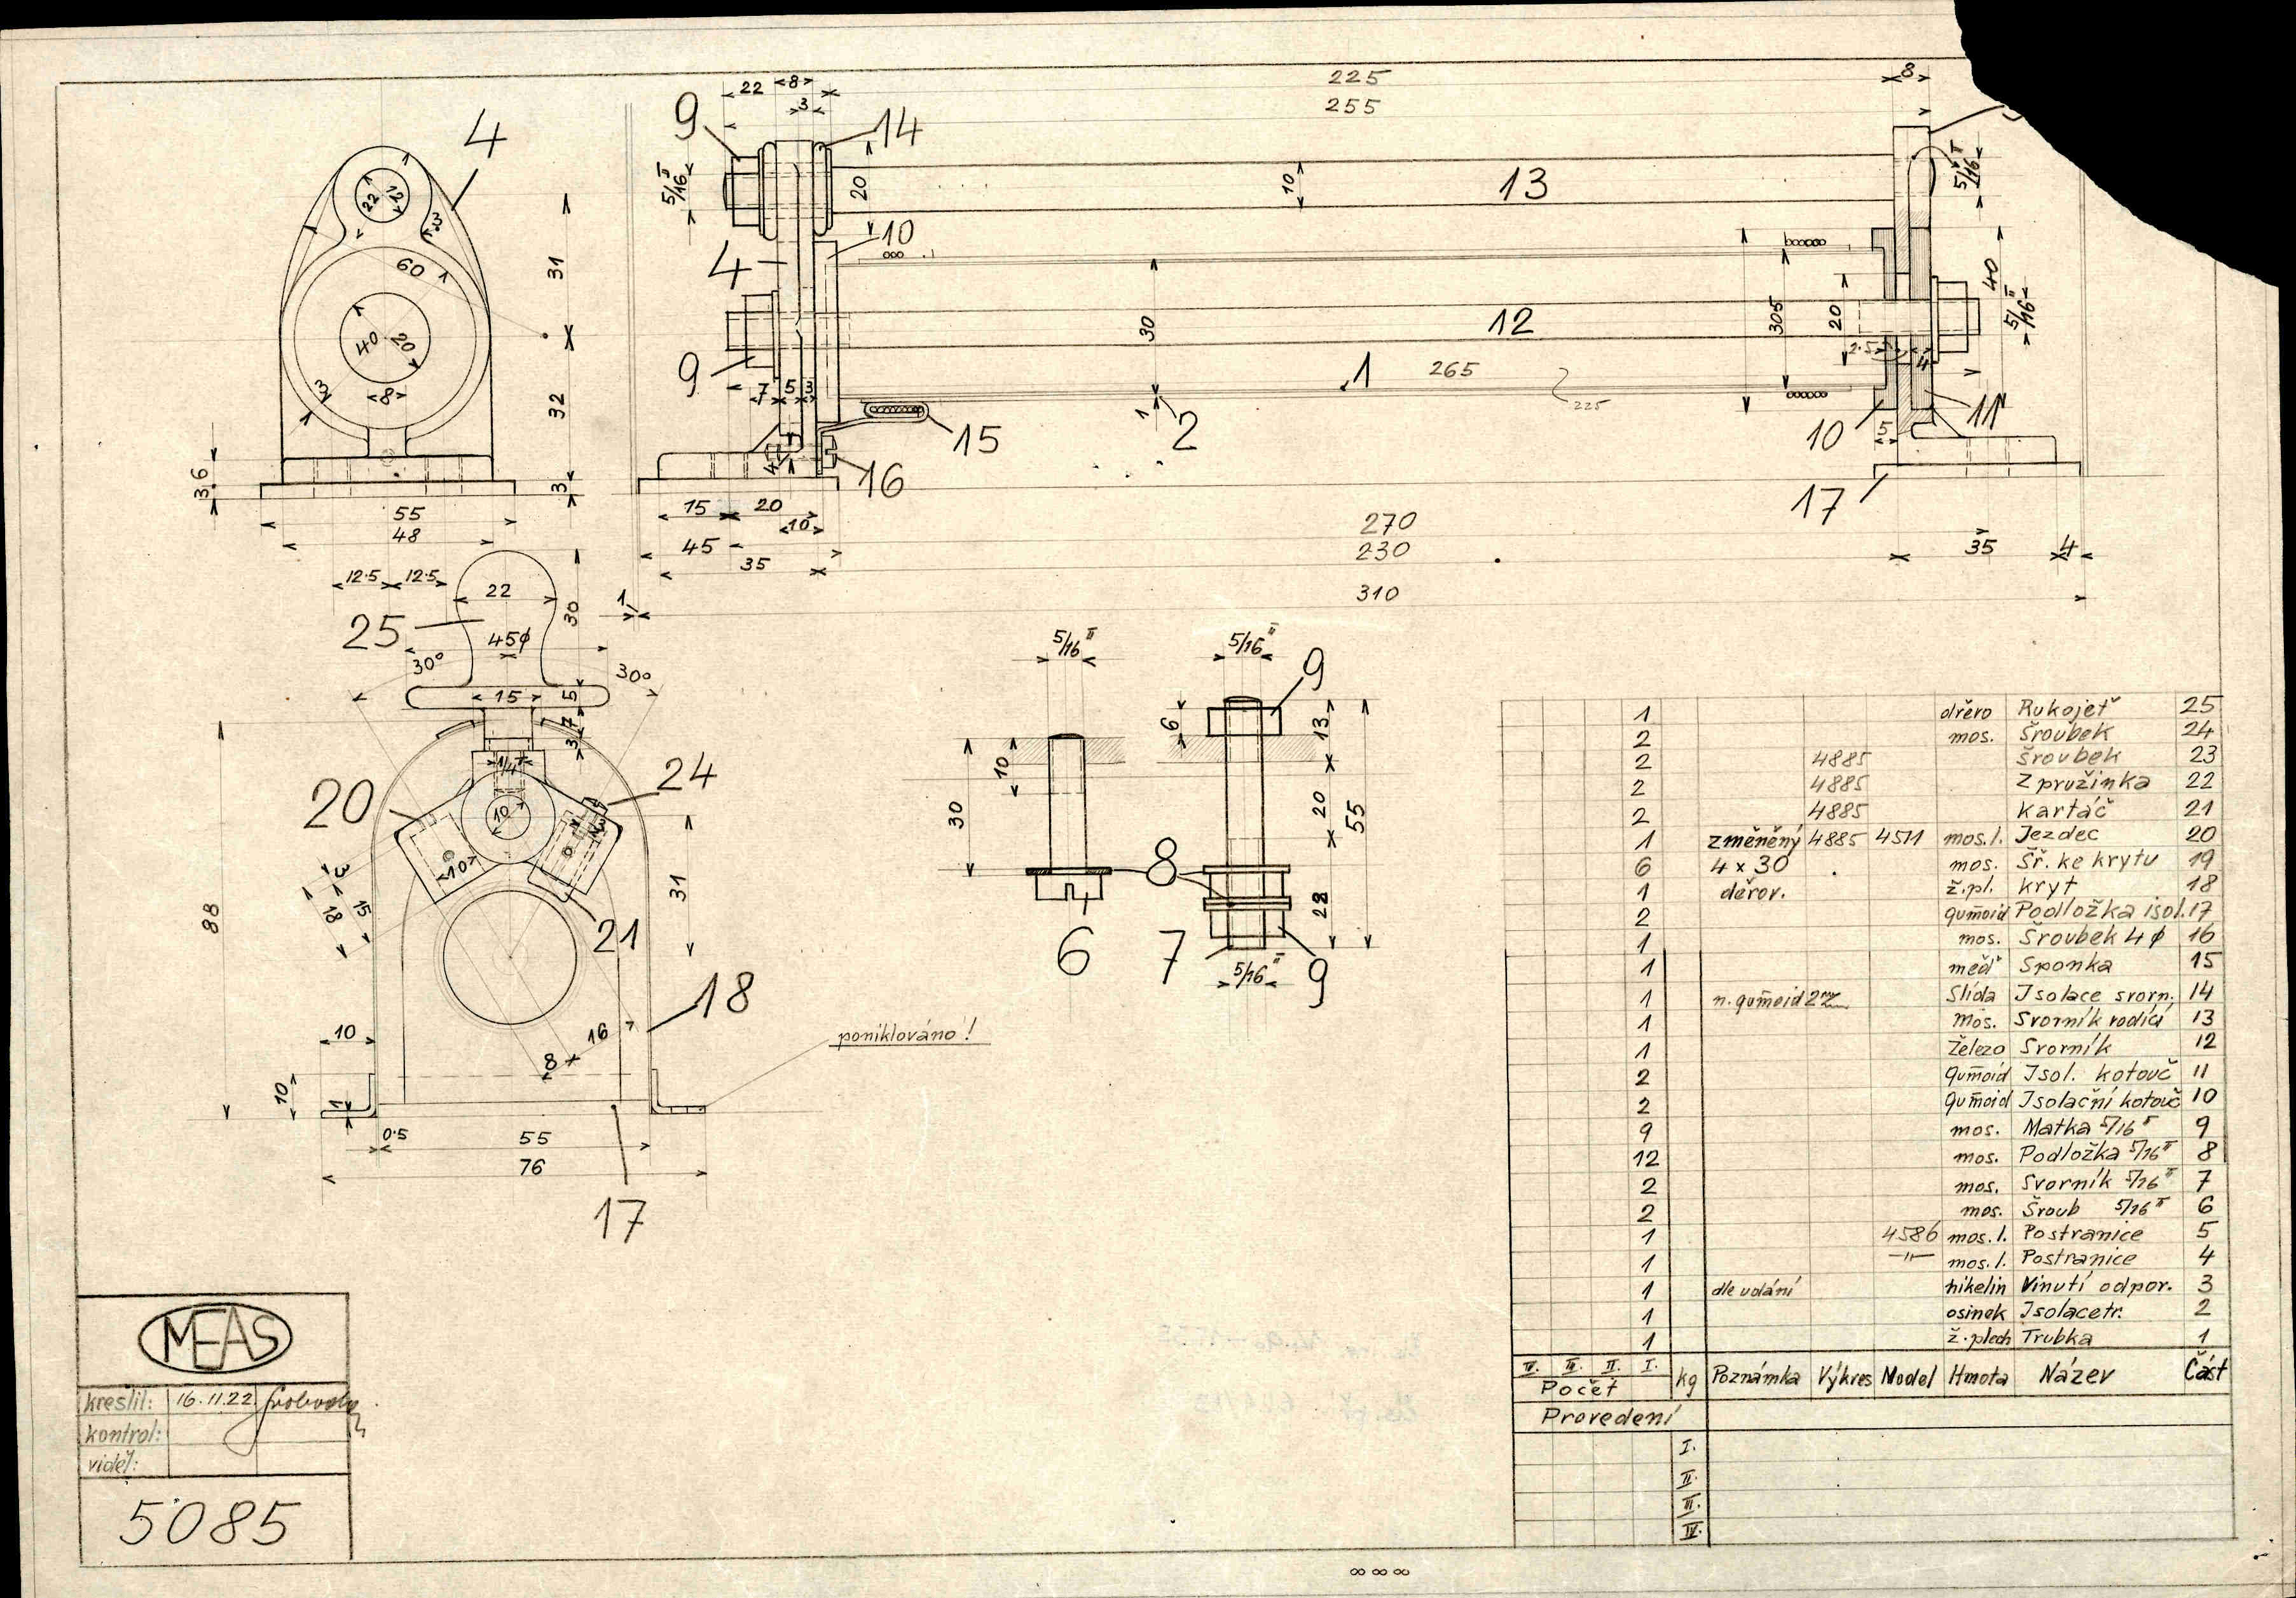 4
22 12
3
60
40 20
3
8
31
32
3
6
3
55
48
22 8
3
225
255
8
9
14
5/16"
20
10
13
5/16"
10
4
30
12
305
20
40
5/16"
9
7 5 3
1
265
225
2.5
4
1
2
15
4
16
10
5
11
17
15 20
10
45
35
270
230
310
35 4
1
12.5 12.5
22
30
25
45φ
30° 30°
15
5
7
3
1/4"
20
24
10
10
3
3
15
18
31
21
88
18
16
8
10
10
1
0.5
55
76
17
poniklováno!
5/16" 5/16"
9
6
13
10
30
20
55
8
28
6 7
5/16"
9
1 dřevo Rukojeť 25
2 mos. Šroubek 24
2 4885 Šroubek 23
2 4885 Zpružinka 22
2 4885 Kartáč 21
1 změněný 4885 4511 mos.l. Jezdec 20
6 4 x 30 mos. Šř. ke krytu 19
1 děrov. ž.pl. Kryt 18
2 gumoid Podložka isol. 17
1 mos. Šroubek 4φ 16
1 měď Sponka 15
1 n. gumoid 2 Slída Isolace svorn. 14
1 mos. Svorník vodící 13
1 Železo Svorník 12
2 gumoid Isol. kotouč 11
2 gumoid Isolační kotouč 10
9 mos. Matka 5/16" 9
12 mos. Podložka 5/16" 8
2 mos. Svorník 5/16" 7
2 mos. Šroub 5/16" 6
1 4586 mos.l. Postranice 5
1 –"– mos.l. Postranice 4
1 dle udání nikelin Vinutí odpor. 3
1 osinek Isolace tr. 2
1 ž.plech Trubka 1
IV. III. II. I.
Počet kg Poznámka Výkres Model Hmota Název Část
Provedení
I.
II.
III.
IV.
MEAS
kreslil: 16.11.22
kontrol:
viděl:
5085